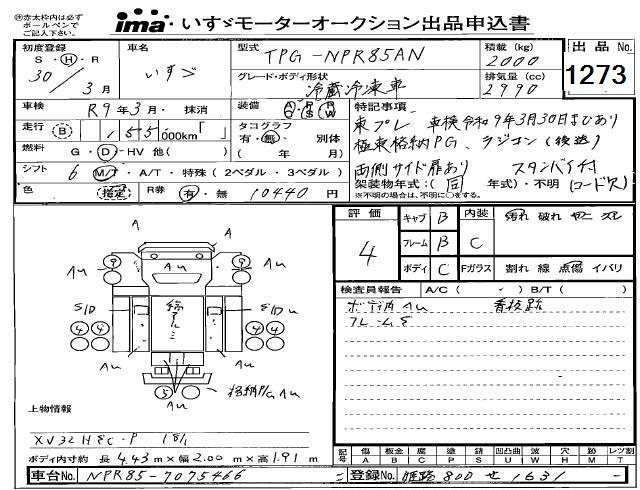 ㊟赤太枠内は必ず
ボールペンで
ご記入下さい。
ima いすゞモーターオークション出品申込書
初度登録
S・H・R
30/3月
車名
いすゞ
型式
TPG-NPR85AN
積載(kg)
2000
出品No.
1273
グレード・ボディ形状
冷蔵冷凍車
排気量(cc)
2990
車検
R9年3月・抹消
装備
特記事項
東プレ 車検令和9年3月30日まであり
極東格納PG、ラジコン(後送)
両側サイド扉あり スタンバイ付
走行(B)
155
000km「 」
タコグラフ
有・無・ 別体
( 年 月)
燃料
G・D・HV 他( )
シフト
6 M/T・A/T・特殊(2ペダル・3ペダル)
架装物年式:(同 年式)・不明 (コード欠)
※不明の場合は、不明に○をする。
色
指定
R券
有・無
10440円
評価
4
キャブ B
フレーム B
ボディ C
内装 C
汚れ 破れ
Fガラス 割れ 線 点傷 イバリ
検査員報告 A/C( - ) B/T( )
ボディ内Au 看板跡
フレームE
A
A
Au
Au
Au
S/D
S/D u
4 4
4 4
Au
Au
5
格納PG Au
上物情報
XV32HEC-P
ボディ内寸約 長4.43m×幅2.00m×高1.91m
記号
傷 板金 腐 塗 錆 凹凸曲 波 穴 跡 レンズ割
A B C P S U W H M T
車台No. NPR85-7075466
登録No. 姫路800せ1631